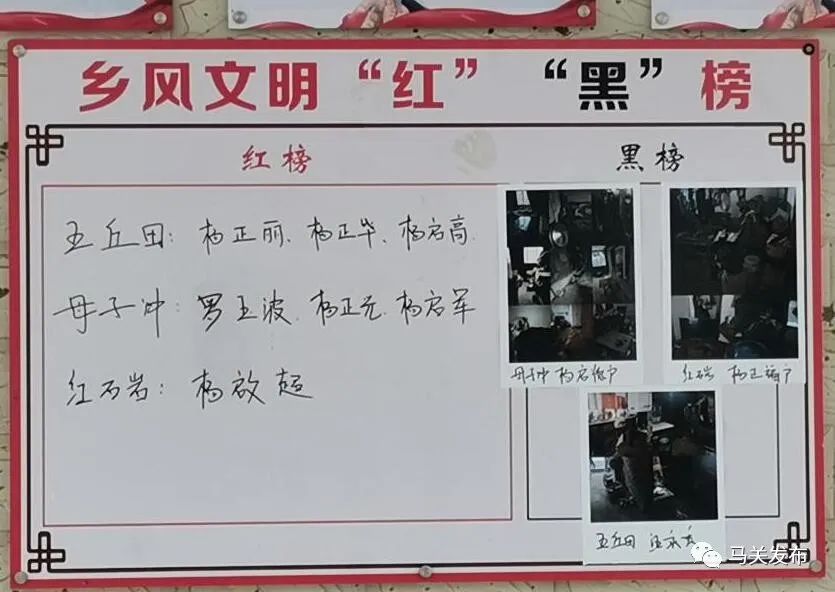 乡风文明“红” “黑”榜
红榜
黑榜
五丘田：杨正丽、杨正华、杨启高
母子冲：罗玉波、杨正元、杨启军
红石岩：杨启超
母子冲 杨启 户
红岩 杨正 户
五丘田
马关发布